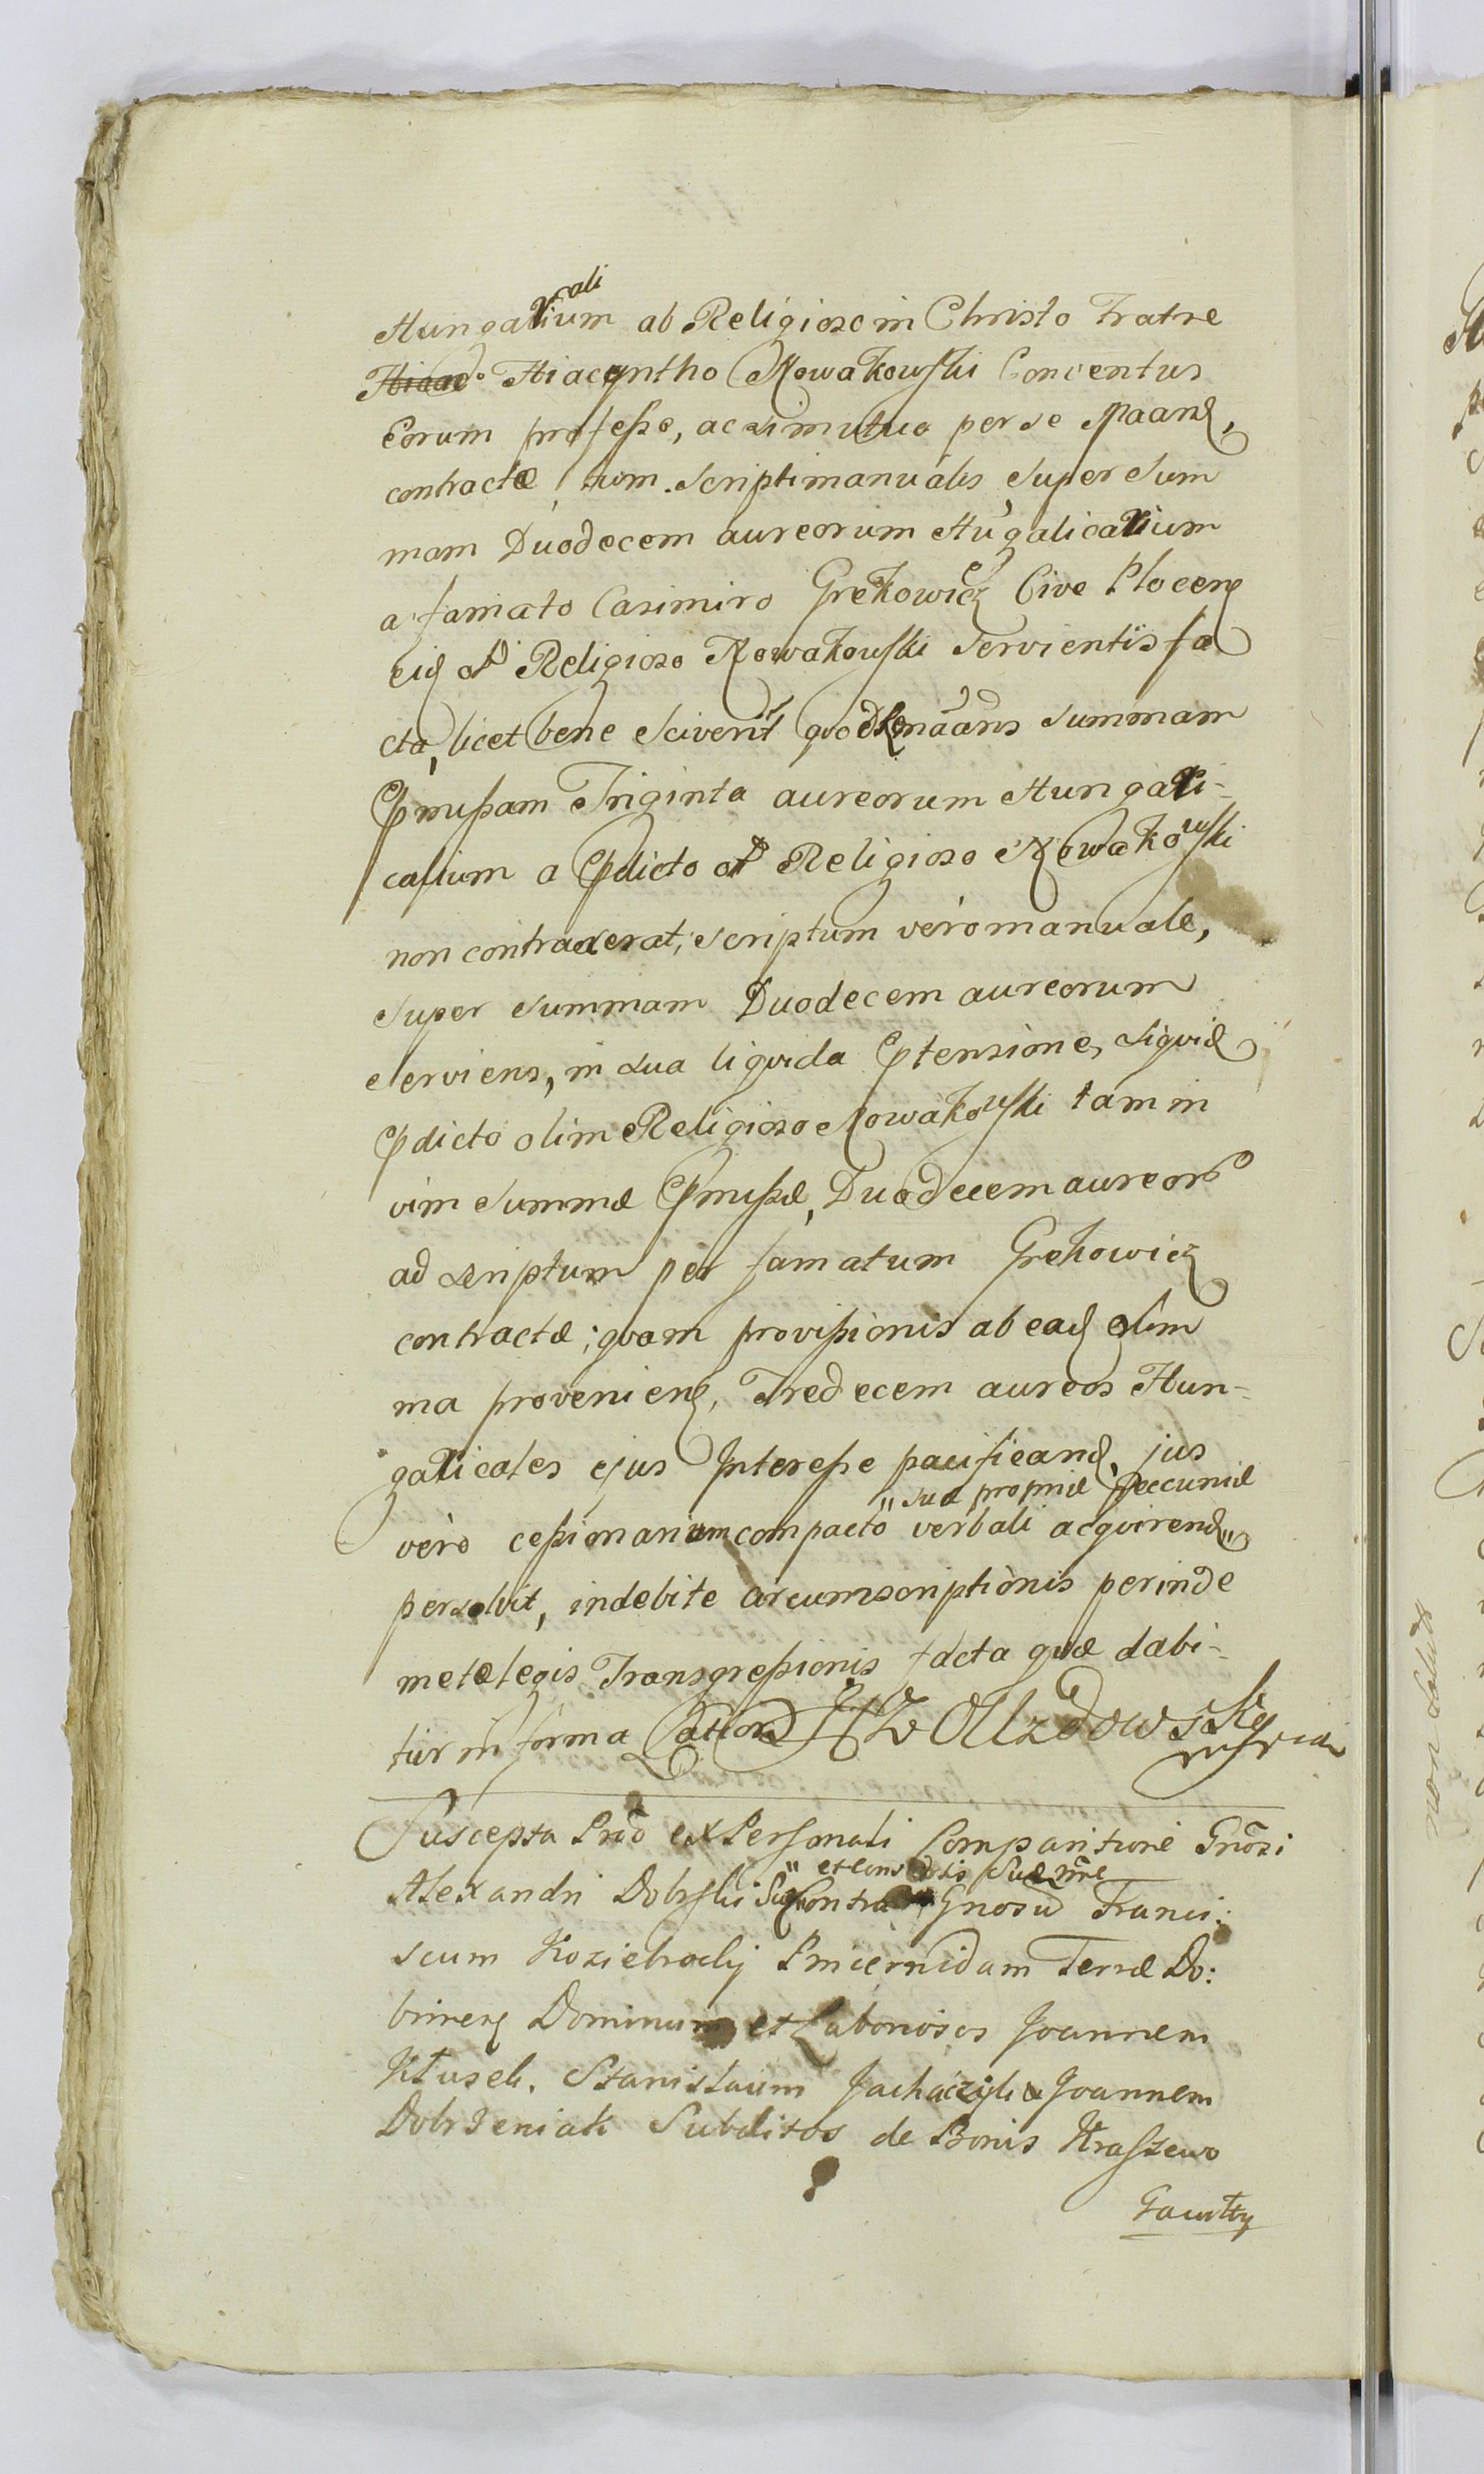 Hungalicalium ab Religioso in Christo Fratre
Hiacynto Hiacyntho Nowakowski Conventus
Eorum professo, ac si mutuo per se Maand,
contractæ, tum scripti manualis super Sum
mam Duodecem aureorum Hugalicalium
a famato Casimiro Grekowicz Cive Plocen
eid ol Religioso Nowakowski Servientis fa
cta, licet bene Sciverit quod summam
Pmissam Triginta aureorum Hungali-
calium a Pdicto ol Religioso Nowakowski
non contraxerat, scriptum vero manuale,
Super Summam Duodecem aureorum
Serviens, in sua liqvida Ptensione, siqvid
Pdicto olim Religioso Nowakowski tam in
vim Summæ Pmissæ, Duodecem aureor
ad scriptum per famatum Grekowicz
contractæ; qvam provisionis ab ead sum
ma provenien, Tredecem aureos Hun-
galicales ejus Interesse pacificand, jus
" suæ propriæ peccuniæ
vero cessionarium compacto verbali acqvirend "
persolvit, indebite circumscriptionis perinde
metælegis Transgressionis facta qvæ dabi-
tur in forma Cation Olszdowski
Suscepta Prad ex Personali Comparitione Gnosi
" et consortis Suæ
Alexandri Dobrski Sui Contra Gnosum Franci:
scum Koziebrodzki Pincernidam Terræ Do:
brinen Dominum et Laboriosos Joannem
Kłusek, Stanislaum & Joannem
Dobrzeniak Subditos de Bonis Kraszewo
Gawłty
non solut